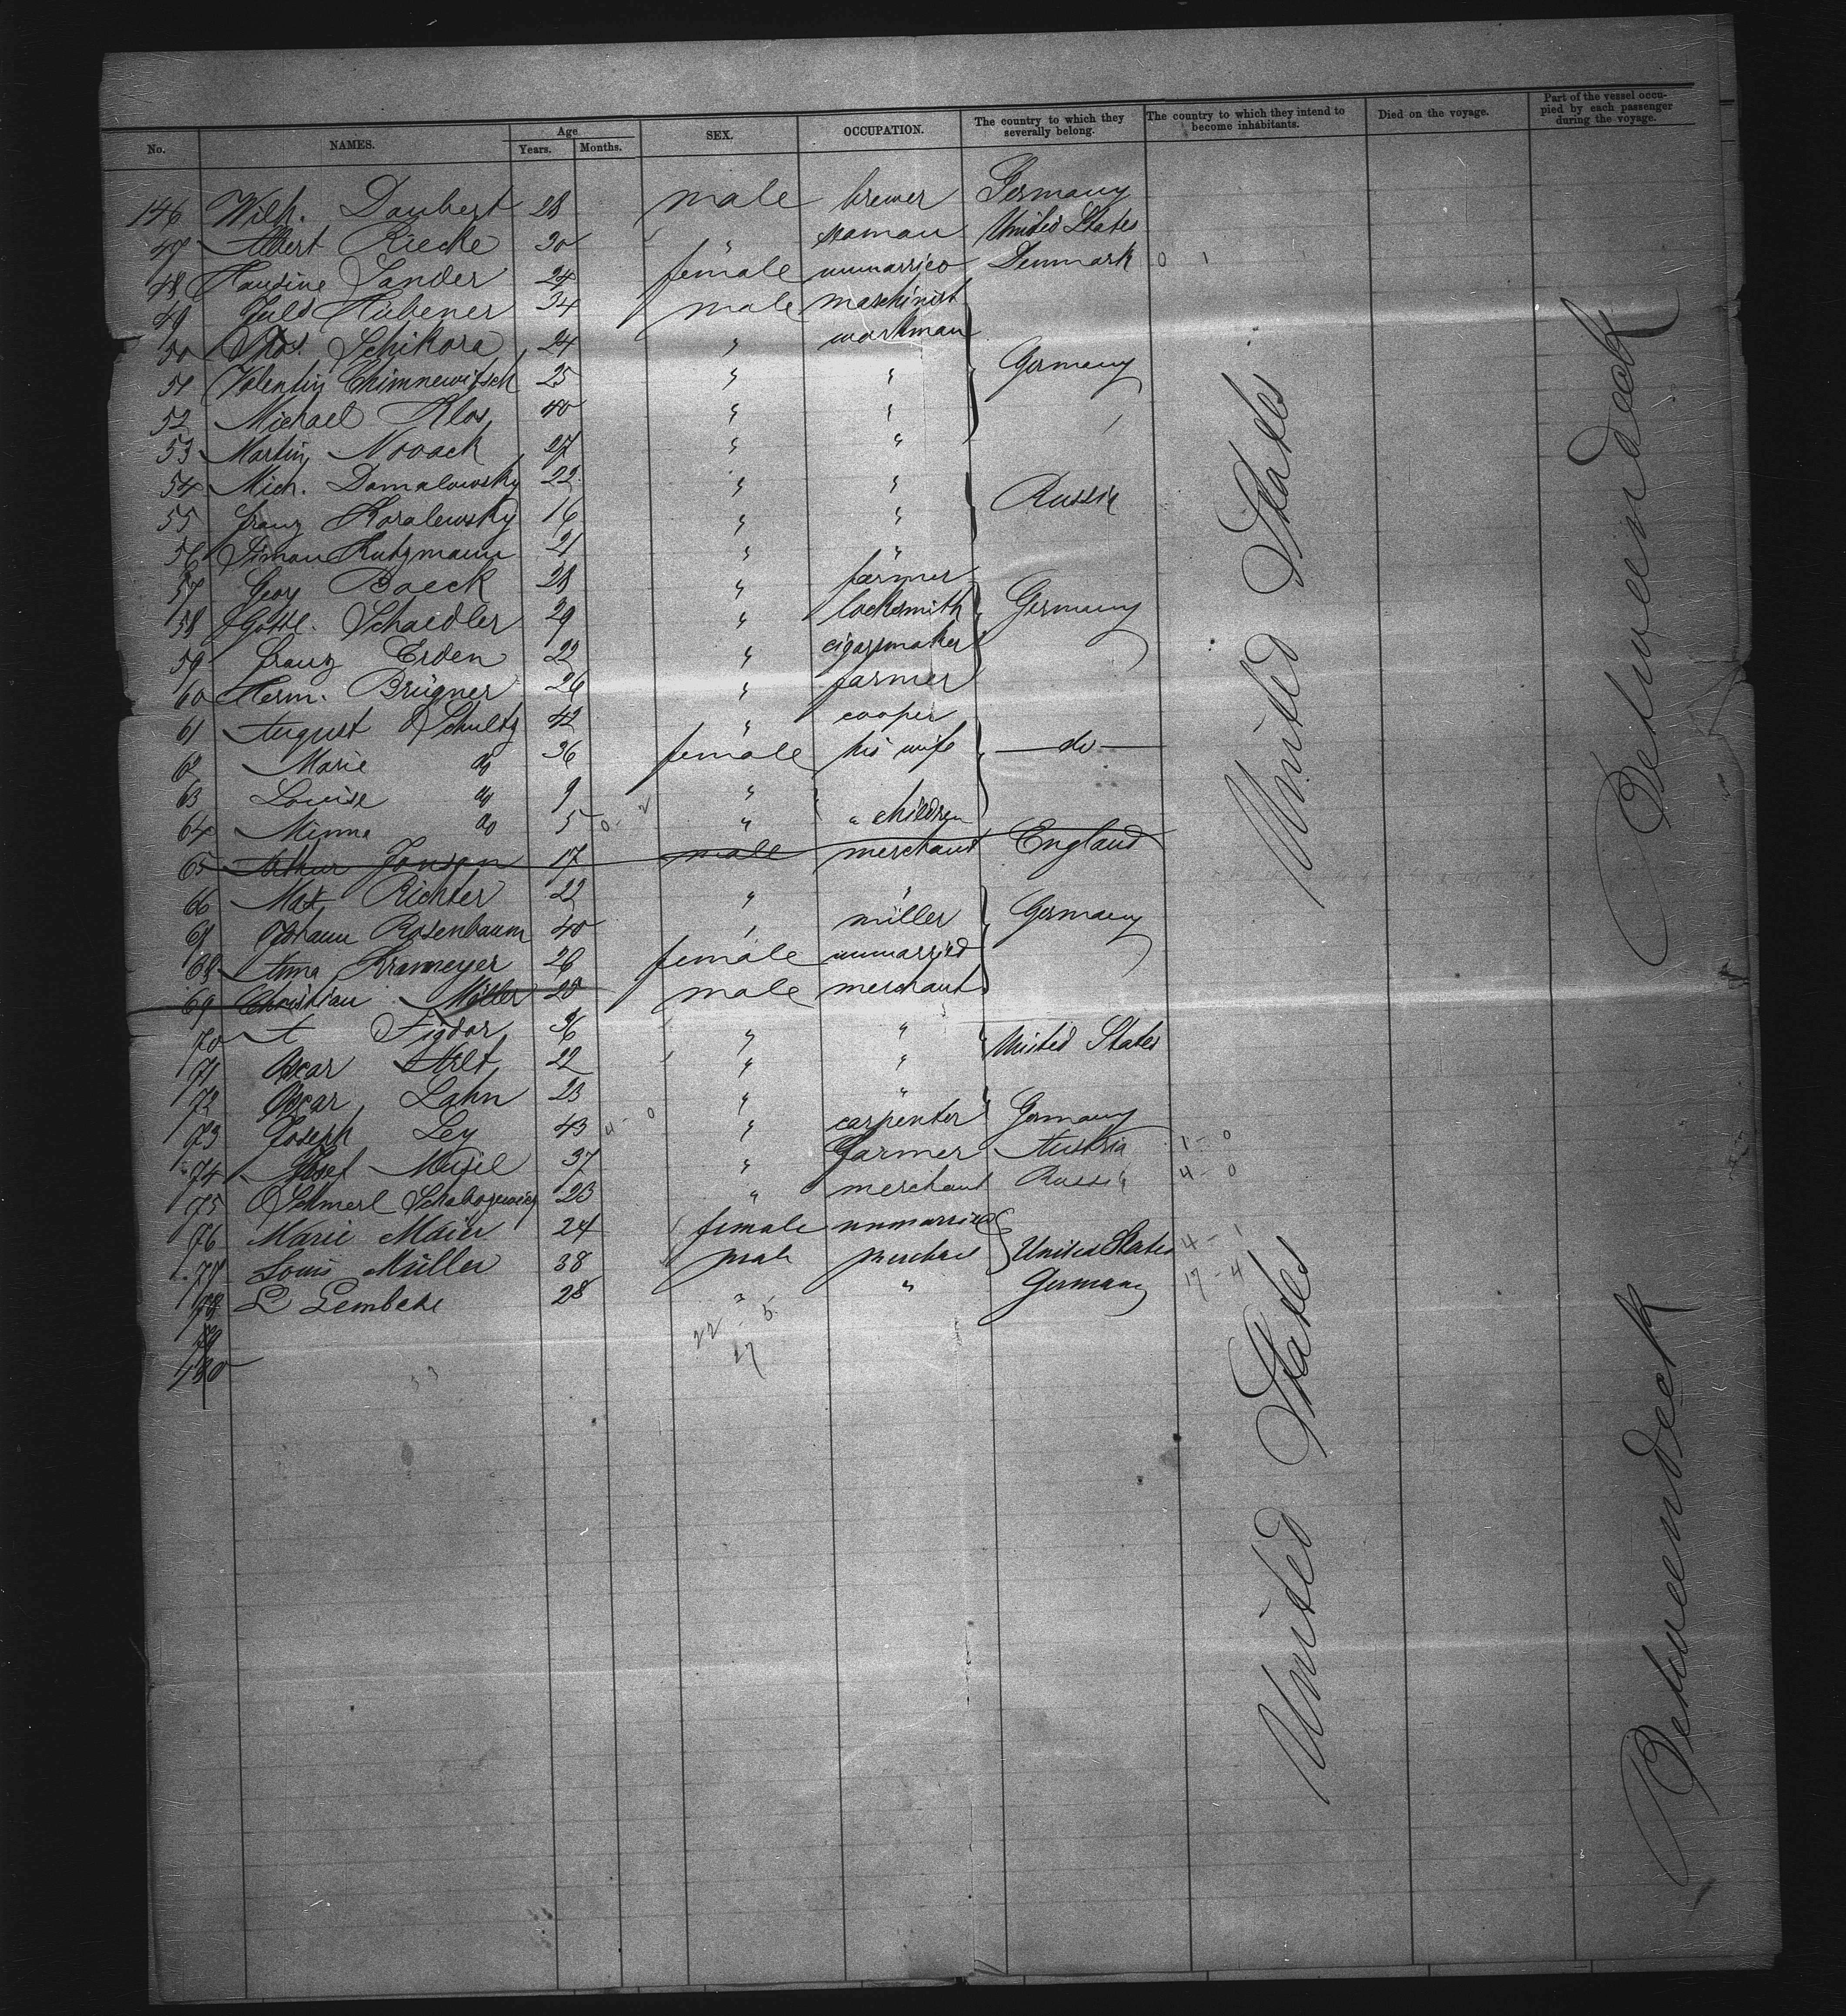 No. NAMES. Age Years. Months. SEX. OCCUPATION. The country to which they severally belong. The country to which they intend to become inhabitants. Died on the voyage. Part of the vessel occupied by each passenger during the voyage.
146 Wilh. Daubert 28 male brewer Germany
47 Albert Riecke 30 " seaman United States
48 Sander 24 female unmarried Denmark 0 1
49 Hübener 34 male maschinist
50 Thos. Schikora 24 " workman
51 Valentin Chimnewitsch 25 " " Germany
52 Michael Klos 40 " "
53 Martin Novack 27 " "
54 Mich. Domalowsky 22 " "
55 Franz Koralewsky 16 " " Russia
56 Simon Kutzmann 21 " "
57 Georg Boeck 28 " farmer
58 Gottl. Schaedler 29 " locksmith Germany
59 Franz Erden 22 " cigarsmaker
60 Herm. Brügner 26 " farmer
61 August Schultz 42 " cooper
62 Marie do 36 female his wife —do—
63 Louise do 9 "
64 Minna do 5 " " children
65 Arthur Jonson 17 male merchant England
66 Max Richter 22 " "
67 Johann Rosenbaum 40 " miller Germany
68 Anna Krameyer 26 female unmarried
69 Christian Möller 25 male merchant
70 A Figdor 36 " "
71 Oscar Arlt 22 " " United States
72 Oscar Lahn 23 " "
73 Joseph Ley 43 " carpenter Germany
74 Josef Musil 37 " farmer Austria 1 - 0
75 Schmerl 23 " merchant Russia 4 - 0
76 Marie Maier 24 female unmarried
77 Louis Müller 38 male merchant United States 4 - 1
78 L Lembcke 28 " " Germany 17 - 4
79
180
22 - 5
17
33
United States
United States
Betweendeck
Betweendeck